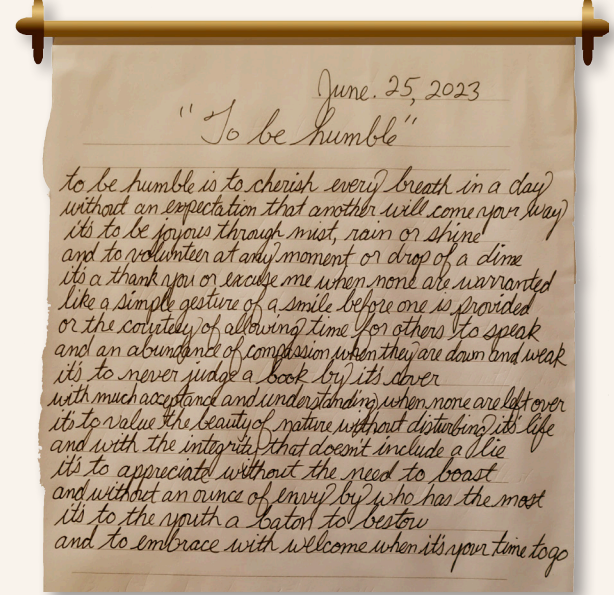 June. 25, 2023
"To be humble"
to be humble is to cherish every breath in a day
without an expectation that another will come your way
it's to be joyous through mist, rain or shine
and to volunteer at any moment or drop of a dime
it's a thank you or excuse me when none are warranted
like a simple gesture of a smile before one is provided
or the courtesy of allowing time for others to speak
and an abundance of compassion when they are down and weak
it's to never judge a book by it's cover
with much acceptance and understanding when none are left over
it's to value the beauty of nature without disturbing it's life
and with the integrity that doesn't include a lie
it's to appreciate without the need to boast
and without an ounce of envy by who has the most
it's to the youth a baton to bestow
and to embrace with welcome when it's your time to go